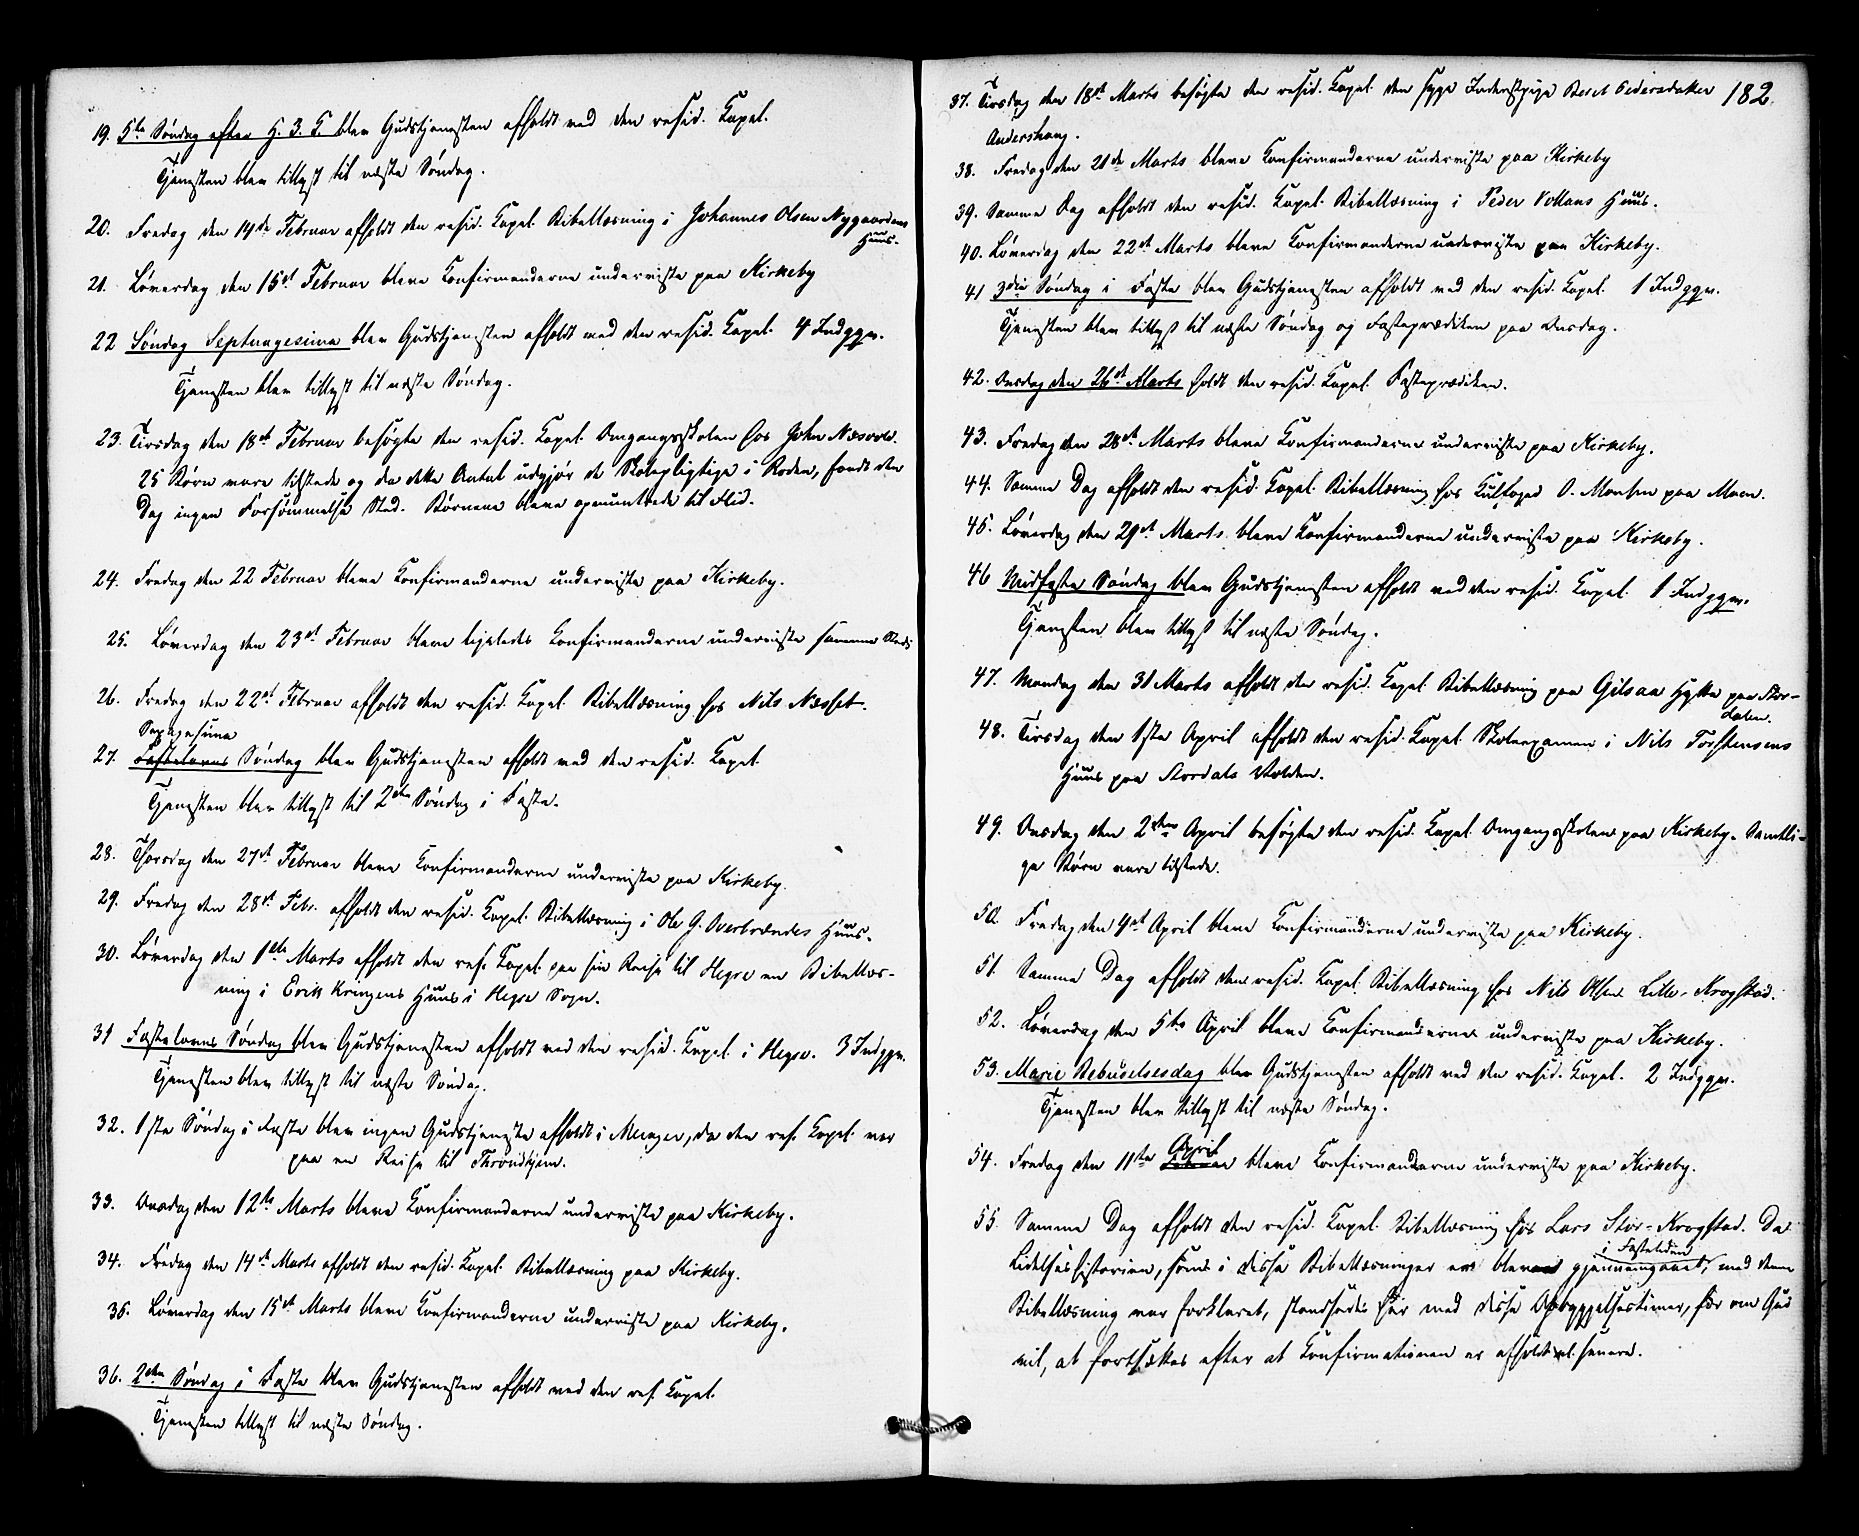 19. 5te Søndag efter H. 3. K. blev Gudstjenesten afholdt ved den resid. Capel.
Tjenesten blev tillyst til næste Søndag.
20. Fredag den 14de Februar afholdt den resid. Capel. Bibellæsning i Johannes Olsen Nygaardens
Huus.
21. Løverdag den 15de Februar bleve Confirmanderne underviste paa Kirkeby
22 Søndag Septuagesima blev Gudstjenesten afholdt ved den resid. Capel. 4 Indggr.
Tjenesten blev tillyst til næste Søndag.
23. Tirsdag den 18de Februar besøgte den resid. Capel. Omgangsskolen hos John Næsvold.
25 Børn vare tilstede og da dette Antal udgjør de Skolepligtige i Roden, fandt den
Dag ingen Forsømmelse Sted. Børnene bleve opmuntrede til Flid.
24. Fredag den 22 Februar bleve Confirmanderne underviste paa Kirkeby.
25. Løverdag den 23de Februar bleve ligeledes Confirmanderne underviste samme Sted
26. Fredag den 22de Februar afholdt den resid. Capel. Bibellæsning hos Nils Næsset.
Sexagesima
27. Fastelavns Søndag blev Gudstjenesten afholdt ved den resid. Capel.
Tjenesten blev tillyst til 2den Søndag i Faste.
28. Thorsdag den 27de Februar bleve Confirmanderne underviste paa Kirkeby.
29. Fredag den 28de Febr. afholdt den resid. Capel. Bibellæsning i Ole G. Overbrændes Huus.
30. Løverdag den 1ste Marts afholdt den res. Capel. paa sin Reise til Hegre en Bibellæs-
ning i Erik Kringens Huus i Hegre Sogn.
31 Fastelavns Søndag blev Gudstjenesten afholdt ved den resid. Capel. i Hegre. 3 Indggr.
Tjenesten blev tillyst til næste Søndag.
32. 1ste Søndag i Faste blev ingen Gudstjeneste afholdt i Merager, da den res. Capel. var
paa en Reise til Throndhjem.
33. Onsdag den 12te Marts bleve Confirmanderne underviste paa Kirkeby.
34. Fredag den 14de Marts afholdt den resid. Capel. Bibellæsning paa Kirkeby.
35. Løverdag den 15de Marts bleve Confirmanderne underviste paa Kirkeby.
36. 2den Søndag i Faste blev Gudstjenesten afholdt ved den res. Capel.
Tjenesten tillyst til næste Søndag.
182.
37. Tirsdag den 18de Marts besøgte den resid. Capel. den syge Inderstpige Beret Pedersdatter
Andershaug.
38. Fredag den 21de Marts bleve Confirmanderne underviste paa Kirkeby
39. Samme Dag afholdt den resid. Capel. Bibellæsning i Peder Vollans Huus.
40. Løverdag den 22de Marts bleve Confirmanderne underviste paa Kirkeby.
41 3die Søndag i Faste blev Gudstjenesten afholdt ved den resid. Capel. 1 Indggr.
Tjenesten blev tillyst til næste Søndag og Fasteprædiken paa Onsdag.
42. Onsdag den 26de Marts holdt den resid. Capel. Fasteprædiken.
43. Fredag den 28de Marts bleve Confirmanderne underviste paa Kirkeby.
44. Samme Dag afholdt den resid. Capel. Bibellæsning hos Kulfoged O. Monsen paa Moen.
45. Løverdag den 29de Marts bleve Confirmanderne underviste paa Kirkeby.
46 Midfaste Søndag blev Gudstjenesten afholdt ved den resid. Capel. 1 Indggr.
Tjenesten blev tillyst til næste Søndag.
47. Mandag den 31 Marts afholdt den resid. Capel. Bibellæsning paa Gilsaa Hytte paa Stor-
dalen.
48. Tirsdag den 1ste April afholdt den resid. Capel. Skoleexamen i Nils Torstensens
Huus paa Stordals Volden.
49. Onsdag den 2den April besøgte den resid. Capel. Omgangsskolen paa Kirkeby. Samtli-
ge Børn vare tilstede.
50. Fredag den 4de April bleve Confirmanderne underviste paa Kirkeby.
51. Samme Dag afholdt den resid. Capel. Bibellæsning hos Nils Olsen Lille-Krogstad.
52. Løverdag den 5te April bleve Confirmanderne underviste paa Kirkeby.
53. Marie Bebudelsesdag blev Gudstjenesten afholdt ved den resid. Capel. 2 Indggr.
Tjenesten blev tillyst til næste Søndag.
April
54. Fredag den 11te bleve Confirmanderne underviste paa Kirkeby.
55. Samme Dag afholdt den resid. Capel. Bibellæsning hos Lars Stor-Krogstad. Da
i Fastetiden
Lidelseshistorien, som i disse Bibellæsninger er bleven gjennemgaaet, med denne
Bibellæsning var forklaret, standsedes her med disse Opbyggelsestimer, for om Gud
vil, at fortsættes efter at Confirmationen er afholdt el. senere.